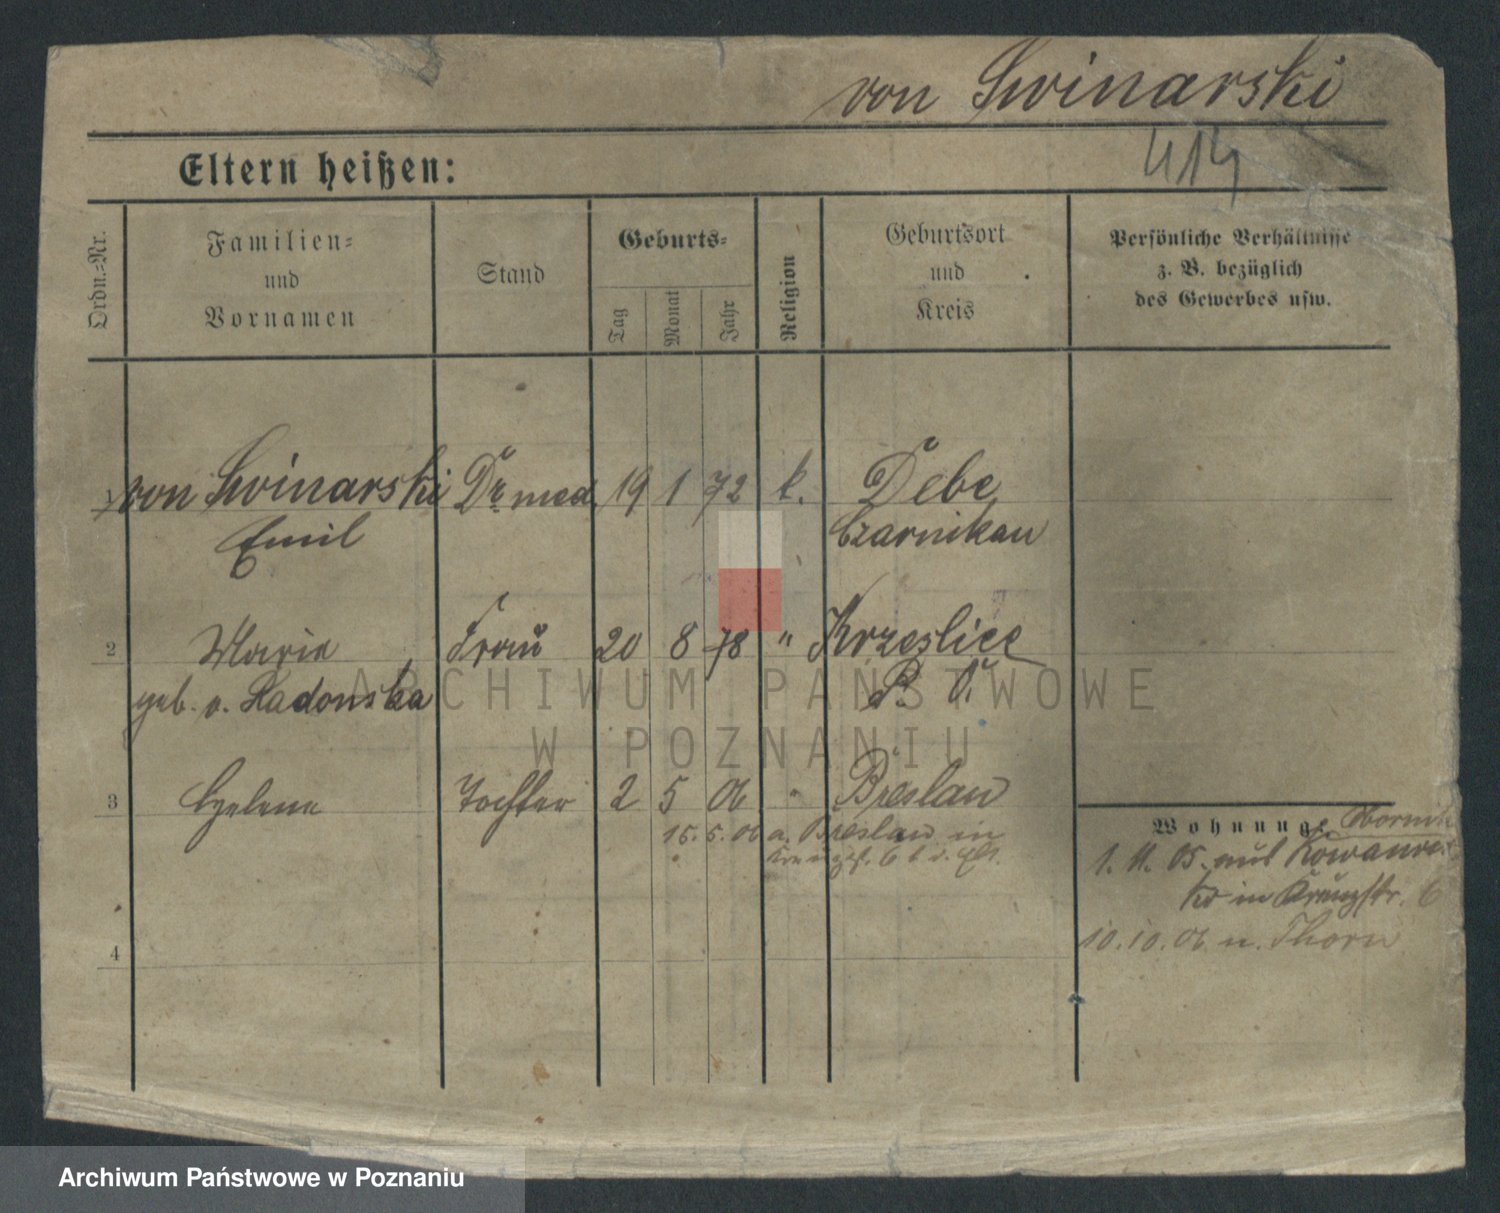 von Swinarski
414
Eltern heißen:
Ordn.=Nr.
Familien=
und
Vornamen
Stand
Geburts=
Tag
Monat
Jahr
Religion
Geburtsort
und
Kreis
Persönliche Verhältnisse
z. B. bezüglich
des Gewerbes usw.
1 von Swinarski Dr. med. 19 1 72 k. Debe
Emil Czarnikau
2 Marie Frau 20 8 78 " Krzeslice
geb. v. Radonska P. O.
3 Helene Tochter 2 5 06 " Breslau
15. 5. 06 a. Breslau in
6 b. d. Elt.
Wohnung: Obornik
1. 11. 05. aus Kowanow=
ko in Kreuzstr. 6
10. 10. 06 n. Thorn
4
ARCHIWUM PAŃSTWOWE
W POZNANIU
Archiwum Państwowe w Poznaniu